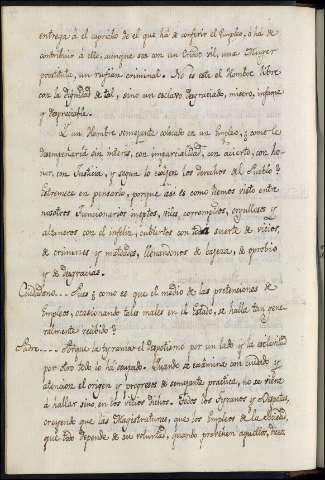 entrega á el capricho de el que há de conferir el Empleo, ó há de
contribuir á ello, aunque sea con un Criado vil, una Muger
prostituta, un rufian criminal. No és este el Hombre libre
con la dignidad de tal, sino un esclavo degraciado, misero, infame
y despreciable.
Y un Hombre semejante colocado en un Empleo, ¿como le
desempeñará sin interés, con imparcialidad, con acierto, con ho-
nor, con Justicia, y segun lo exijen los derechos del Pueblo?
Estremece en pensarlo, porque asi es como hemos visto entre
nosotros Funcionarios ineptos, viles, corrompidos, orgullosos y
altaneros con el infeliz, cubiertos con toda suerte de vicios,
de crimenes y maldades, llenandonos de bajeza, de oprobio
y de desgracias.
Ciudadano... Pues ¿como es que el medio de las pretenciones de
Empleos, ocasionando tales males en el Estado, se halla tan gene-
ralmente recibido?
Padre.... Porque la tyrania el despotismo por un lado y la esclavitud
por otro todo lo há causado. Quando se examina con cuidado y
atencion el origen y progresos de semejante practica, no se viene
á hallar sino en los vicios dichos. Todos los Tyranos y Despotas,
creyendo que las Magistraturas, que los Empleos de la Sociedad,
que todo depende de su voluntad, quando provehen aquellos, dicen